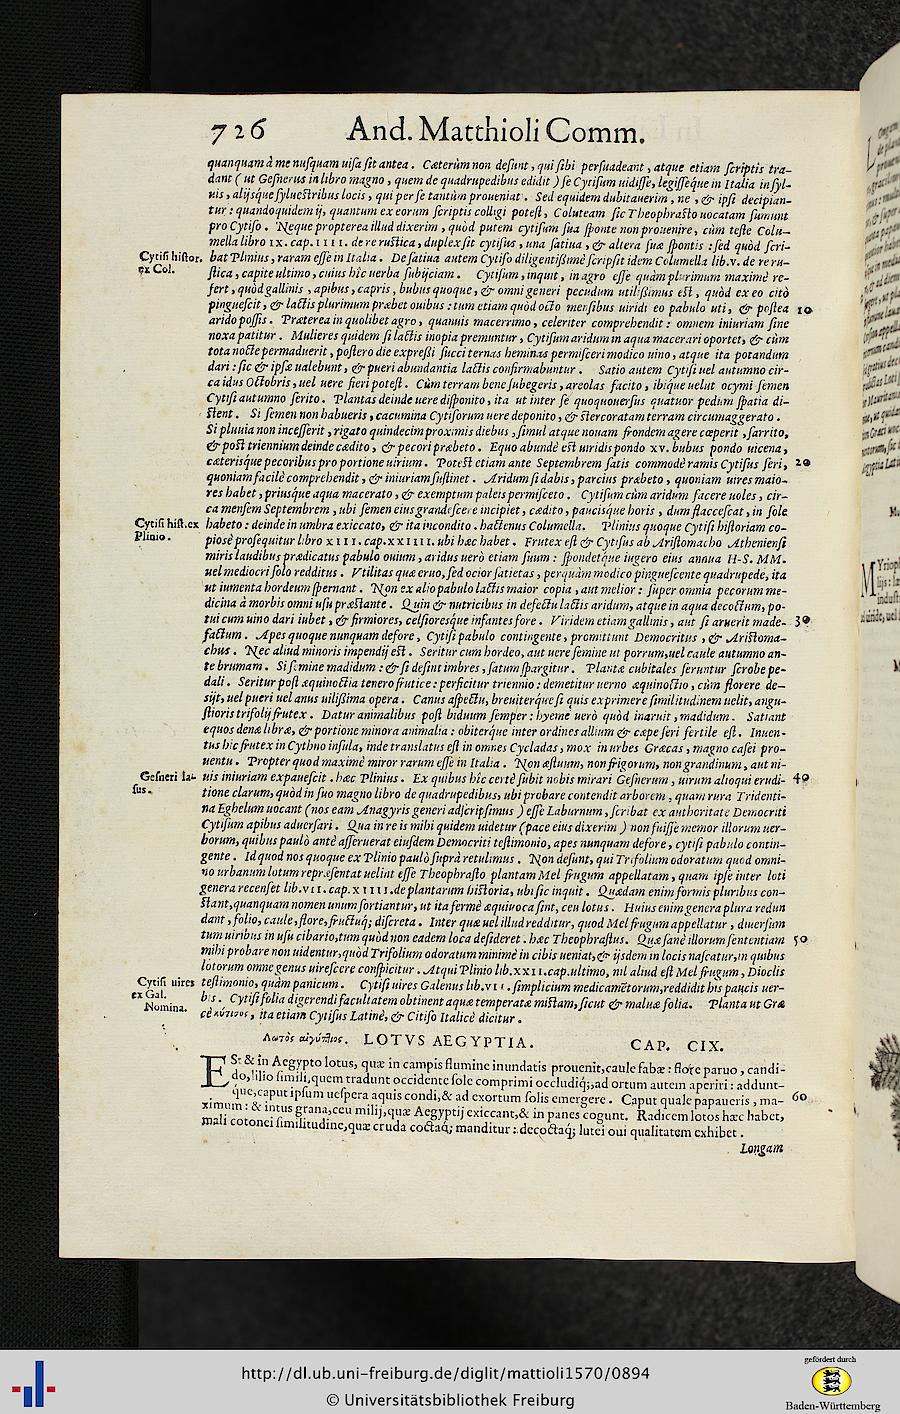 726 And. Matthioli Comm.
quanquam à me nusquam uisa sit antea. Cæterùm non desunt, qui sibi persuadeant, atque etiam scriptis tra-
dant (ut Gesnerus in libro magno, quem de quadrupedibus edidit) se Cytisum uidisse, legisséque in Italia in syl-
uis, alijsque syluestribus locis, qui per se tantùm proueniat. Sed equidem dubitauerim, ne, & ipsi decipian-
tur: quandoquidem ij, quantum ex eorum scriptis colligi potest, Coluteam sic Theophrasto uocatam sumunt
pro Cytiso. Neque propterea illud dixerim, quòd putem cytisum sua sponte non prouenire, cùm teste Colu-
mella libro IX. cap. IIII. de re rustica, duplex sit cytisus, una satiua, & altera suæ spontis: sed quòd scri-
Cytisi histor. ex Col.
bat Plinius, raram esse in Italia. De satiua autem Cytiso diligentißimè scripsit idem Columella lib. v. de re ru-
stica, capite ultimo, cuius hîc uerba subijciam. Cytisum, inquit, in agro esse quàm plurimum maximè re-
fert, quòd gallinis, apibus, capris, bubus quoque, & omni generi pecudum utilißimus est, quòd ex eo citò
pinguescit, & lactis plurimum præbet ouibus: tum etiam quòd octo mensibus uiridi eo pabulo uti, & postea 10
arido possis. Præterea in quolibet agro, quamuis macerrimo, celeriter comprehendit: omnem iniuriam sine
noxa patitur. Mulieres quidem si lactis inopia premuntur, Cytisum aridum in aqua macerari oportet, & cùm
tota nocte permaduerit, postero die expreßi succi ternas heminas permisceri modico uino, atque ita potandum
dari: sic & ipsæ ualebunt, & pueri abundantia lactis confirmabuntur. Satio autem Cytisi uel autumno cir-
ca idus Octobris, uel uere fieri potest. Cùm terram bene subegeris, areolas facito, ibique uelut ocymi semen
Cytisi autumno serito. Plantas deinde uere disponito, ita ut inter se quoquouersus quatuor pedum spatia di-
stent. Si semen non habueris, cacumina Cytisorum uere deponito, & stercoratam terram circumaggerato.
Si pluuia non incesserit, rigato quindecim proximis diebus, simul atque nouam frondem agere cœperit, sarrito,
& post triennium deinde cædito, & pecori præbeto. Equo abundè est uiridis pondo xv. bubus pondo uicena,
cæterisque pecoribus pro portione uirium. Potest etiam ante Septembrem satis commodè ramis Cytisus seri, 20
quoniam facilè comprehendit, & iniuriam sustinet. Aridum si dabis, parcius præbeto, quoniam uires maio-
res habet, priusque aqua macerato, & exemptum paleis permisceto. Cytisum cùm aridum facere uoles, cir-
ca mensem Septembrem, ubi semen eius grandescere incipiet, cædito, paucisque horis, dum flaccescat, in sole
Cytisi hist. ex Plinio.
habeto: deinde in umbra exiccato, & ita incondito. hactenus Columella. Plinius quoque Cytisi historiam co-
piosè prosequitur libro XIII. cap. XXIIII. ubi hæc habet. Frutex est & Cytisus ab Aristomacho Atheniensi
miris laudibus prædicatus pabulo ouium, aridus uerò etiam suum: spondetque iugero eius annua H-S. MM.
uel mediocri solo redditus. Vtilitas quæ eruo, sed ocior satietas, perquàm modico pinguescente quadrupede, ita
ut iumenta hordeum spernant. Non ex alio pabulo lactis maior copia, aut melior: super omnia pecorum me-
dicina à morbis omni usu præstante. Quin & nutricibus in defectu lactis aridum, atque in aqua decoctum, po-
tui cum uino dari iubet, & firmiores, celsioresque infantes fore. Viridem etiam gallinis, aut si aruerit made- 30
factum. Apes quoque nunquam defore, Cytisi pabulo contingente, promittunt Democritus, & Aristoma-
chus. Nec aliud minoris impendij est. Seritur cum hordeo, aut uere semine ut porrum, uel caule autumno an-
te brumam. Si semine madidum: & si desint imbres, satum spargitur. Plantæ cubitales seruntur scrobe pe-
dali. Seritur post æquinoctia tenero frutice: perficitur triennio: demetitur uerno æquinoctio, cùm florere de-
sijt, uel pueri uel anus uilißima opera. Canus aspectu, breuiterque si quis exprimere similitudinem uelit, angu-
stioris trifolij frutex. Datur animalibus post biduum semper: hyeme uerò quòd inaruit, madidum. Satiant
equos denæ libræ, & portione minora animalia: obiterque inter ordines allium & cæpe seri fertile est. Inuen-
tus hic frutex in Cythno insula, inde translatus est in omnes Cycladas, mox in urbes Græcas, magno casei pro-
uentu. Propter quod maximè miror rarum esse in Italia. Non æstuum, non frigorum, non grandinum, aut ni-
Gesneri lapsus.
uis iniuriam expauescit. hæc Plinius. Ex quibus hîc certè subit nobis mirari Gesnerum, uirum alioqui erudi- 40
tione clarum, quòd in suo magno libro de quadrupedibus, ubi probare contendit arborem, quam rura Tridenti-
na Eghelum uocant (nos eam Anagyris generi adscripsimus) esse Laburnum, scribat ex authoritate Democriti
Cytisum apibus aduersari. Qua in re is mihi quidem uidetur (pace eius dixerim) non fuisse memor illorum uer-
borum, quibus paulò antè asseruerat eiusdem Democriti testimonio, apes nunquam defore, cytisi pabulo contin-
gente. Id quod nos quoque ex Plinio paulò suprà retulimus. Non desunt, qui Trifolium odoratum quod omni-
no urbanum lotum repræsentat uelint esse Theophrasto plantam Mel frugum appellatam, quam ipse inter loti
genera recenset lib. VII. cap. XIIII. de plantarum historia, ubi sic inquit. Quædam enim formis pluribus con-
stant, quanquam nomen unum sortiantur, ut ita fermè æquiuoca sint, ceu lotus. Huius enim genera plura redun
dant, folio, caule, flore, fructuq; discreta. Inter quæ uel illud redditur, quod Mel frugum appellatur, diuersum
tum uiribus in usu cibario, tum quòd non eadem loca desideret. hæc Theophrastus. Quæ sanè illorum sententiam 50
mihi probare non uidentur, quòd Trifolium odoratum minimè in cibis ueniat, & ijsdem in locis nascatur, in quibus
lotorum omne genus uirescere conspicitur. Atqui Plinio lib. XXII. cap. ultimo, nil aliud est Mel frugum, Dioclis
Cytisi uires ex Gal.
testimonio, quàm panicum. Cytisi uires Galenus lib. VII. simplicium medicamẽtorum, reddidit his paucis uer-
bis. Cytisi folia digerendi facultatem obtinent aquæ temperatæ mistam, sicut & maluæ folia. Planta ut Græ
Nomina.
cè κύτισος, ita etiam Cytisus Latinè, & Citiso Italicè dicitur.
Λωτὸς αἰγύπτιος. LOTVS AEGYPTIA. CAP. CIX.
ESt & in Aegypto lotus, quæ in campis flumine inundatis prouenit, caule fabæ: flore paruo, candi-
do, lilio simili, quem tradunt occidente sole comprimi occludiq;, ad ortum autem aperiri: addunt-
que, caput ipsum uespera aquis condi, & ad exortum solis emergere. Caput quale papaueris, ma- 60
ximum: & intus grana, ceu milij, quæ Aegyptij exiccant, & in panes cogunt. Radicem lotos hæc habet,
mali cotonei similitudine, quæ cruda coctaq; manditur: decoctaq; lutei oui qualitatem exhibet.
Longam
http://dl.ub.uni-freiburg.de/diglit/mattioli1570/0894
© Universitätsbibliothek Freiburg
gefördert durch
Baden-Württemberg